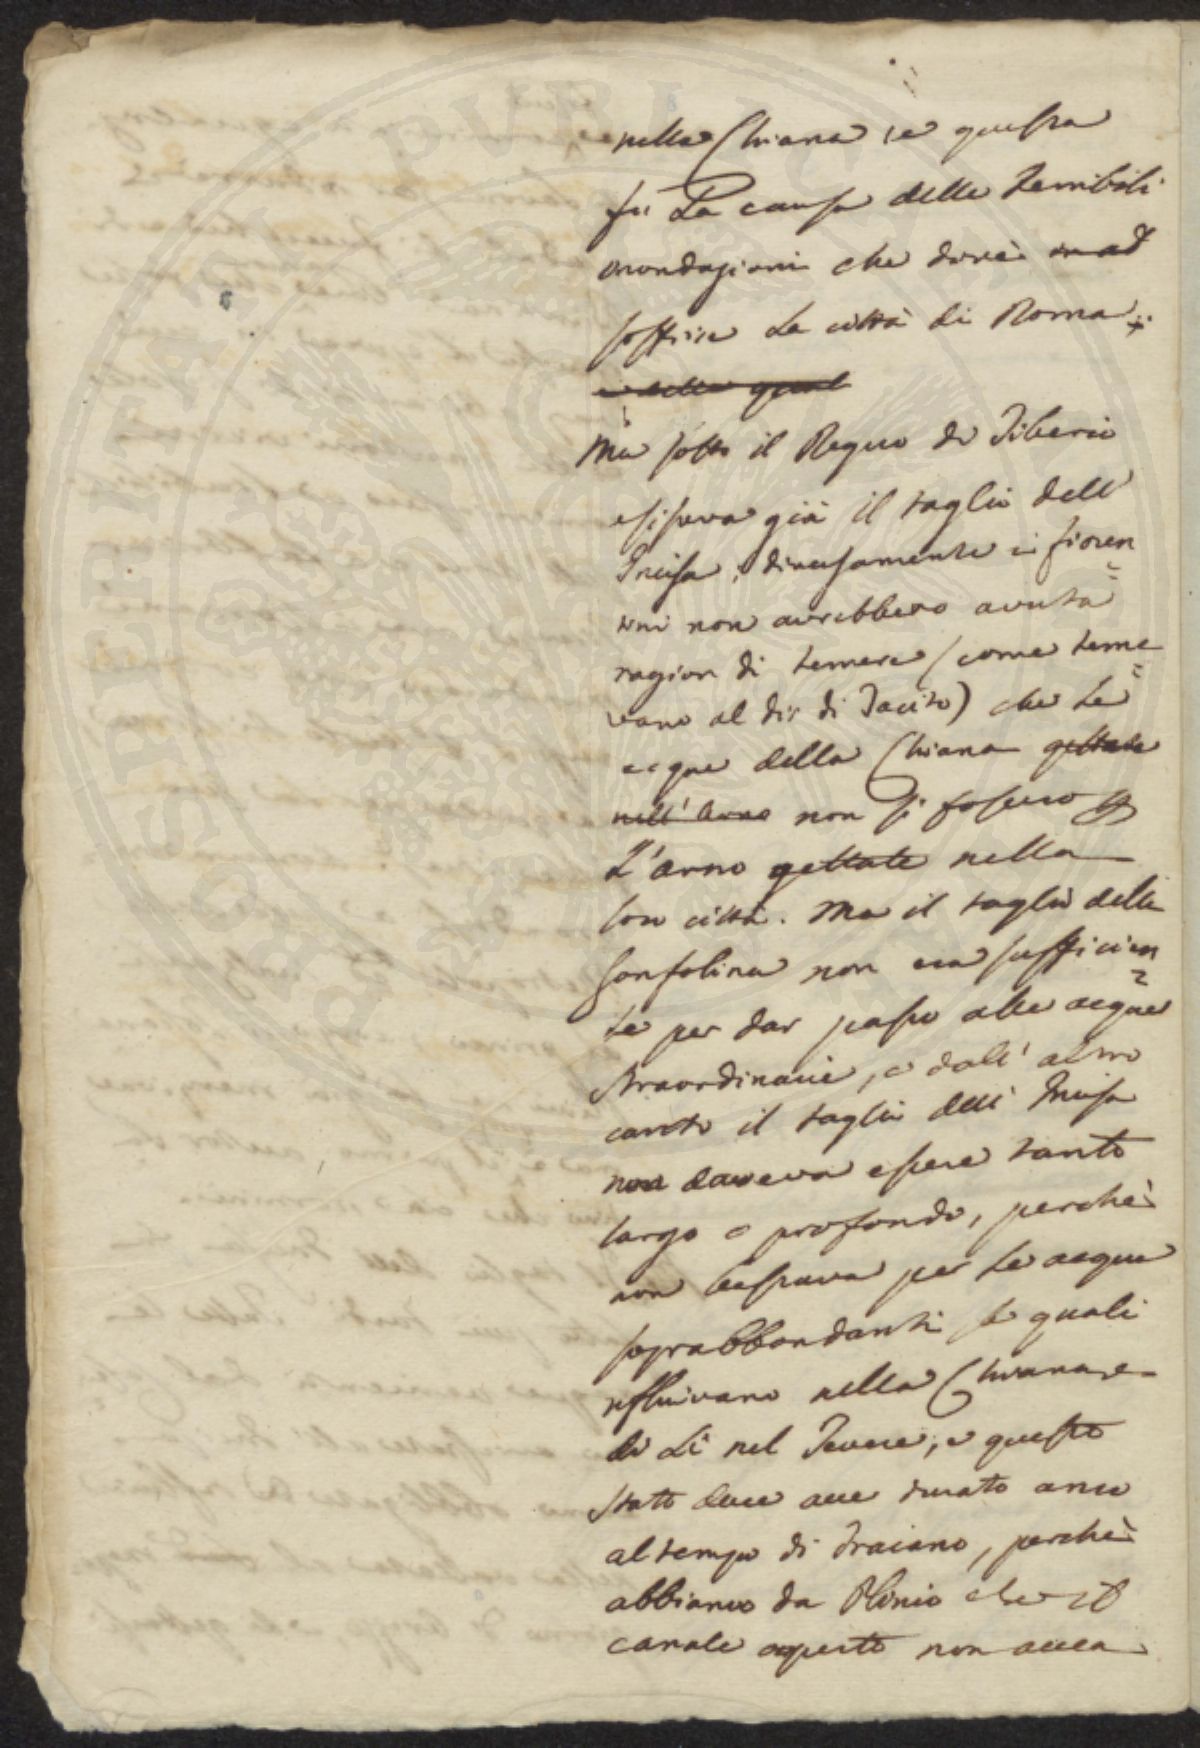 nella Chiana, e questa
fù La causa delle terribili
inondazioni che dovè
soffrire La città di Roma +
e della qual
Ma sotto il Regno di Tiberio
esisteva già il taglio dell'
Incisa, diversamente i fioren=
tini non avrebbero avuta
ragion di temere (come teme=
vano al dir di Tacito) che Le
acque della Chiana gettate
nell' Arno non si fossero
L'arno gettate nella
loro città. Ma il taglio della
Gonfolina non era sufficien=
te per dar passo alle acque
straordinarie, e dall' altro
canto il taglio dell' Incisa
non doveva essere tanto
largo e profondo, perchè
non bastava per Le acque
soprabbondanti le quali
rifluivano nella Chiana e
di Lì nel Tevere, e questo
stato deve aver durato anco
al tempo di Traiano, perchè
abbiamo da Plinio che il
canale aperto non avea